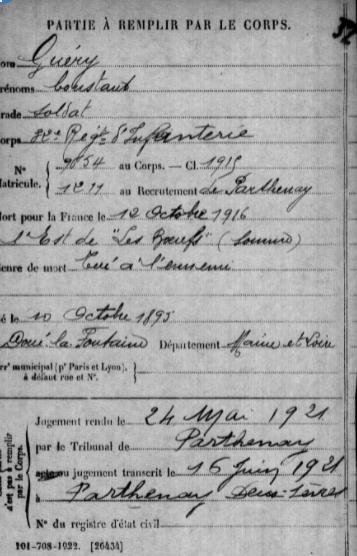 PARTIE À REMPLIR PAR LE CORPS.
52
om Guéry
rénoms Constant
rade soldat
orps 32e Regt d'Infanterie
N° 9854 au Corps. — Cl. 1915
atricule. 1211 au Recrutement de Parthenay
ort pour la France le 12 Octobre 1916
l'Est de "Les Boeufs" (Somme)
enre de mort Tué à l'ennemi
é le 10 Octobre 1895
Doué-la-Fontaine Département Maine et Loire
rr' municipal (p' Paris et Lyon),
à défaut rue et N°.
n'est pas à remplir par le Corps.
Jugement rendu le 24 Mai 1921
par le Tribunal de Parthenay
jugement transcrit le 16 Juin 1921
à Parthenay Deux-Sèvres
N° du registre d'état civil
101-708-1922. [26434]